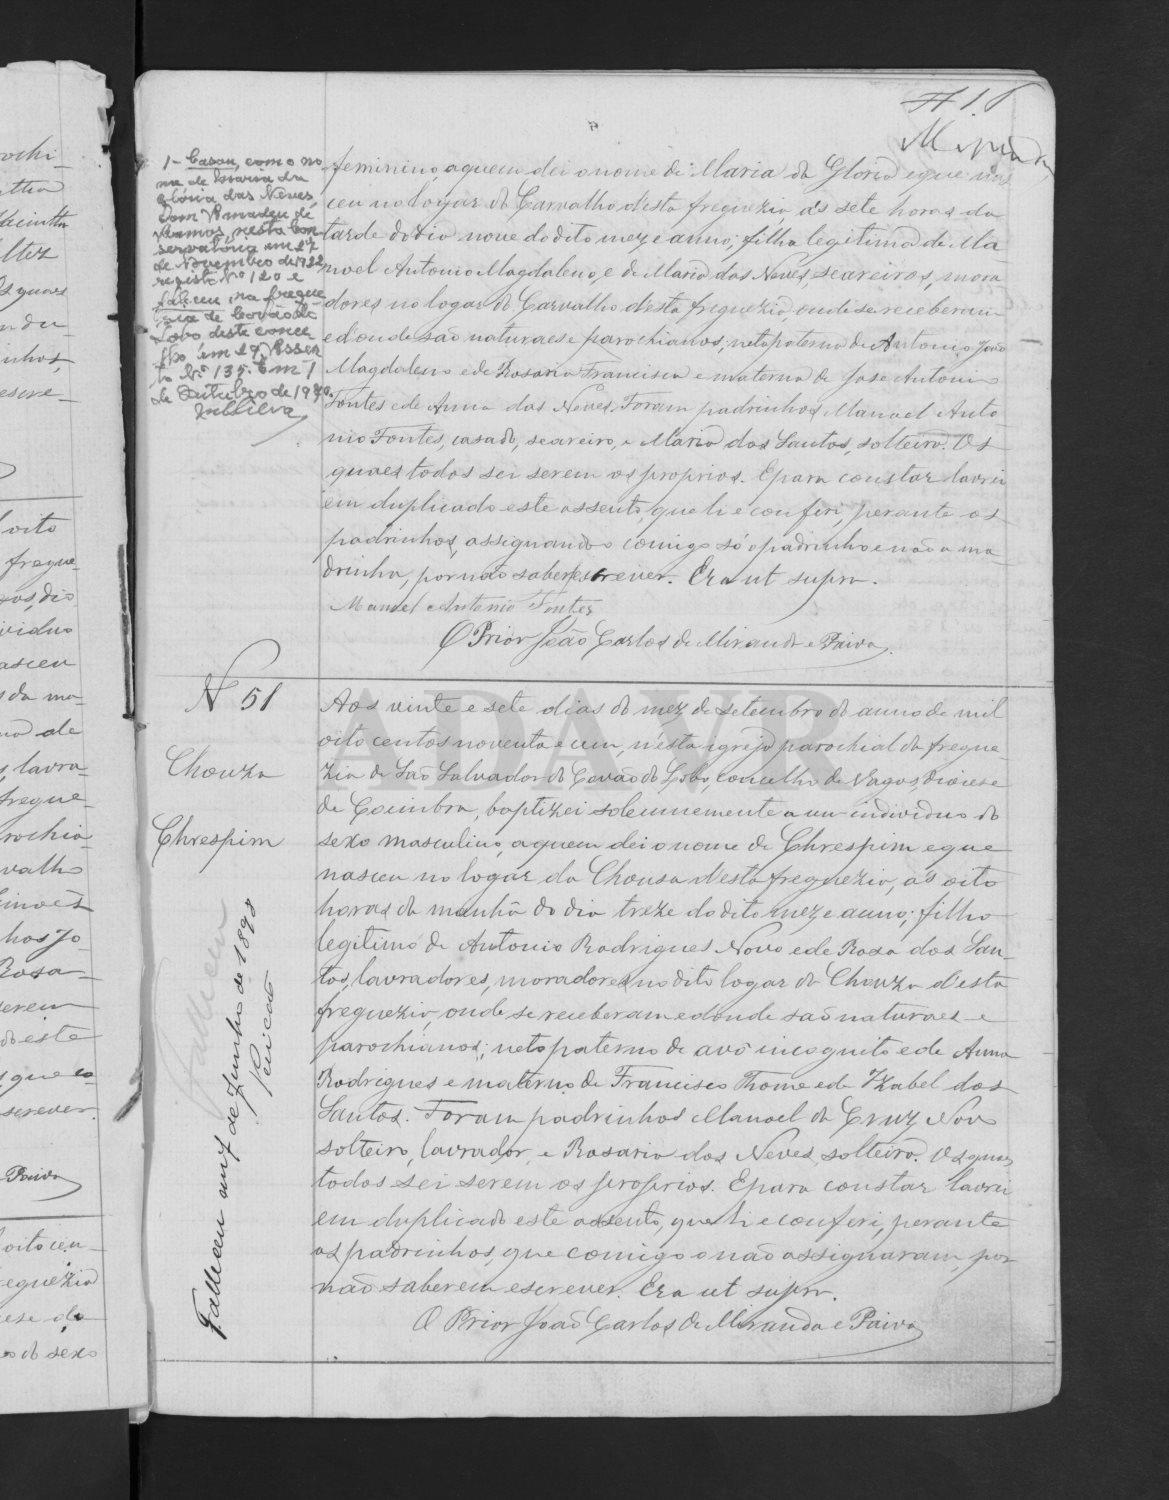 Miranda
1- Casou, como no
me de Maria da
Glória das Neves,
com Amadeu de
Ramos, nesta Con
servatória em 27
de Novembro de 1922
registo Nº 120 e
faleceu na fregue
zia de Covão do
Lobo deste conce
lho em 29. Assen
to Nº 135. Em 1
de Outubro de 1970.
feminino, a quem dei o nome de Maria da Gloria e que nas
ceu no logar do Carvalho d'esta freguezia, ás sete horas da
tarde do dia nove do dito mez e anno; filha legitima de Ma
noel Antonio Magdaleno, e de Maria das Neves, seareiros, mora
dores no logar do Carvalho d'esta freguezia onde se receberam
e d'onde são naturaes e parochianos, neta paterna de Antonio João
Magdaleno e de Rosaria Francisca e materna de Jose Antonio
Fontes e de Anna das Neves. Foram padrinhos Manoel Anto
nio Fontes, casado, seareiro, e Maria dos Santos, solteira. Os
quaes todos sei serem os proprios. E para constar lavrei
em duplicado este assento, que li e conferi, perante os
padrinhos, assignando comigo só o padrinho e não a ma
drinha, por não saber escrever. Era ut supra.
Manuel Antonio Fontes
O Prior João Carlos de Miranda e Paiva.
Nº 51
Chouza
Chrespim
Falleceu
Falleceu em 7 de Junho de 1898
Aos vinte e sete dias do mez de setembro do anno de mil
oito centos noventa e um, n'esta igreja parochial da fregue
zia de São Salvador do Covão do Lobo, concelho de Vagos, diocese
de Coimbra, baptizei solemnemente a um individuo do
sexo masculino, a quem dei o nome de Chrespim e que
nasceu no logar da Chousa d'esta freguezia, ás oito
horas da manhã do dia treze do dito mez e anno; filho
legitimo de Antonio Rodrigues Novo e de Rosa dos San_
tos, lavradores, moradores no dito logar da Chouza d'esta
freguezia, onde se receberam e d'onde são naturaes e
parochianos; neto paterno de avô incognito e de Anna
Rodrigues e materno de Francisco Thome e de Izabel dos
Santos. Foram padrinhos Manoel da Cruz Novo
solteiro, lavrador, e Rosaria das Neves, solteira. Os quaes
todos sei serem os proprios. E para constar lavrei
em duplicado este assento, que li e conferi, perante
os padrinhos, que comigo o não assignaram, por
não saberem escrever. Era ut supra.
O Prior João Carlos de Miranda e Paiva
ADAVR